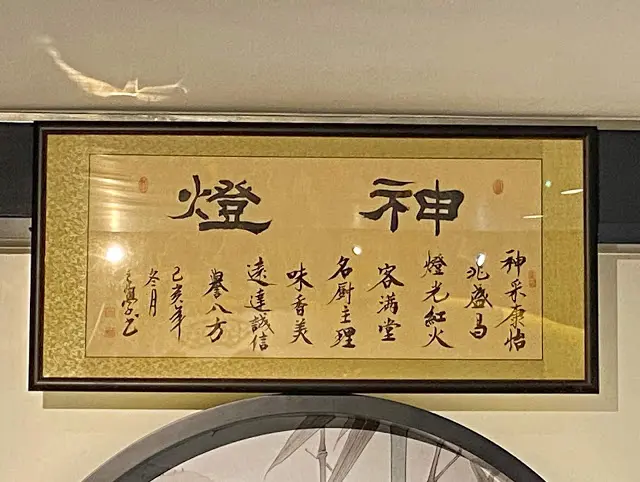 神燈
神采康怡
兆盛昌
燈光紅火
客滿堂
名廚主理
味香美
遠達誠信
譽八方
己亥年
冬月